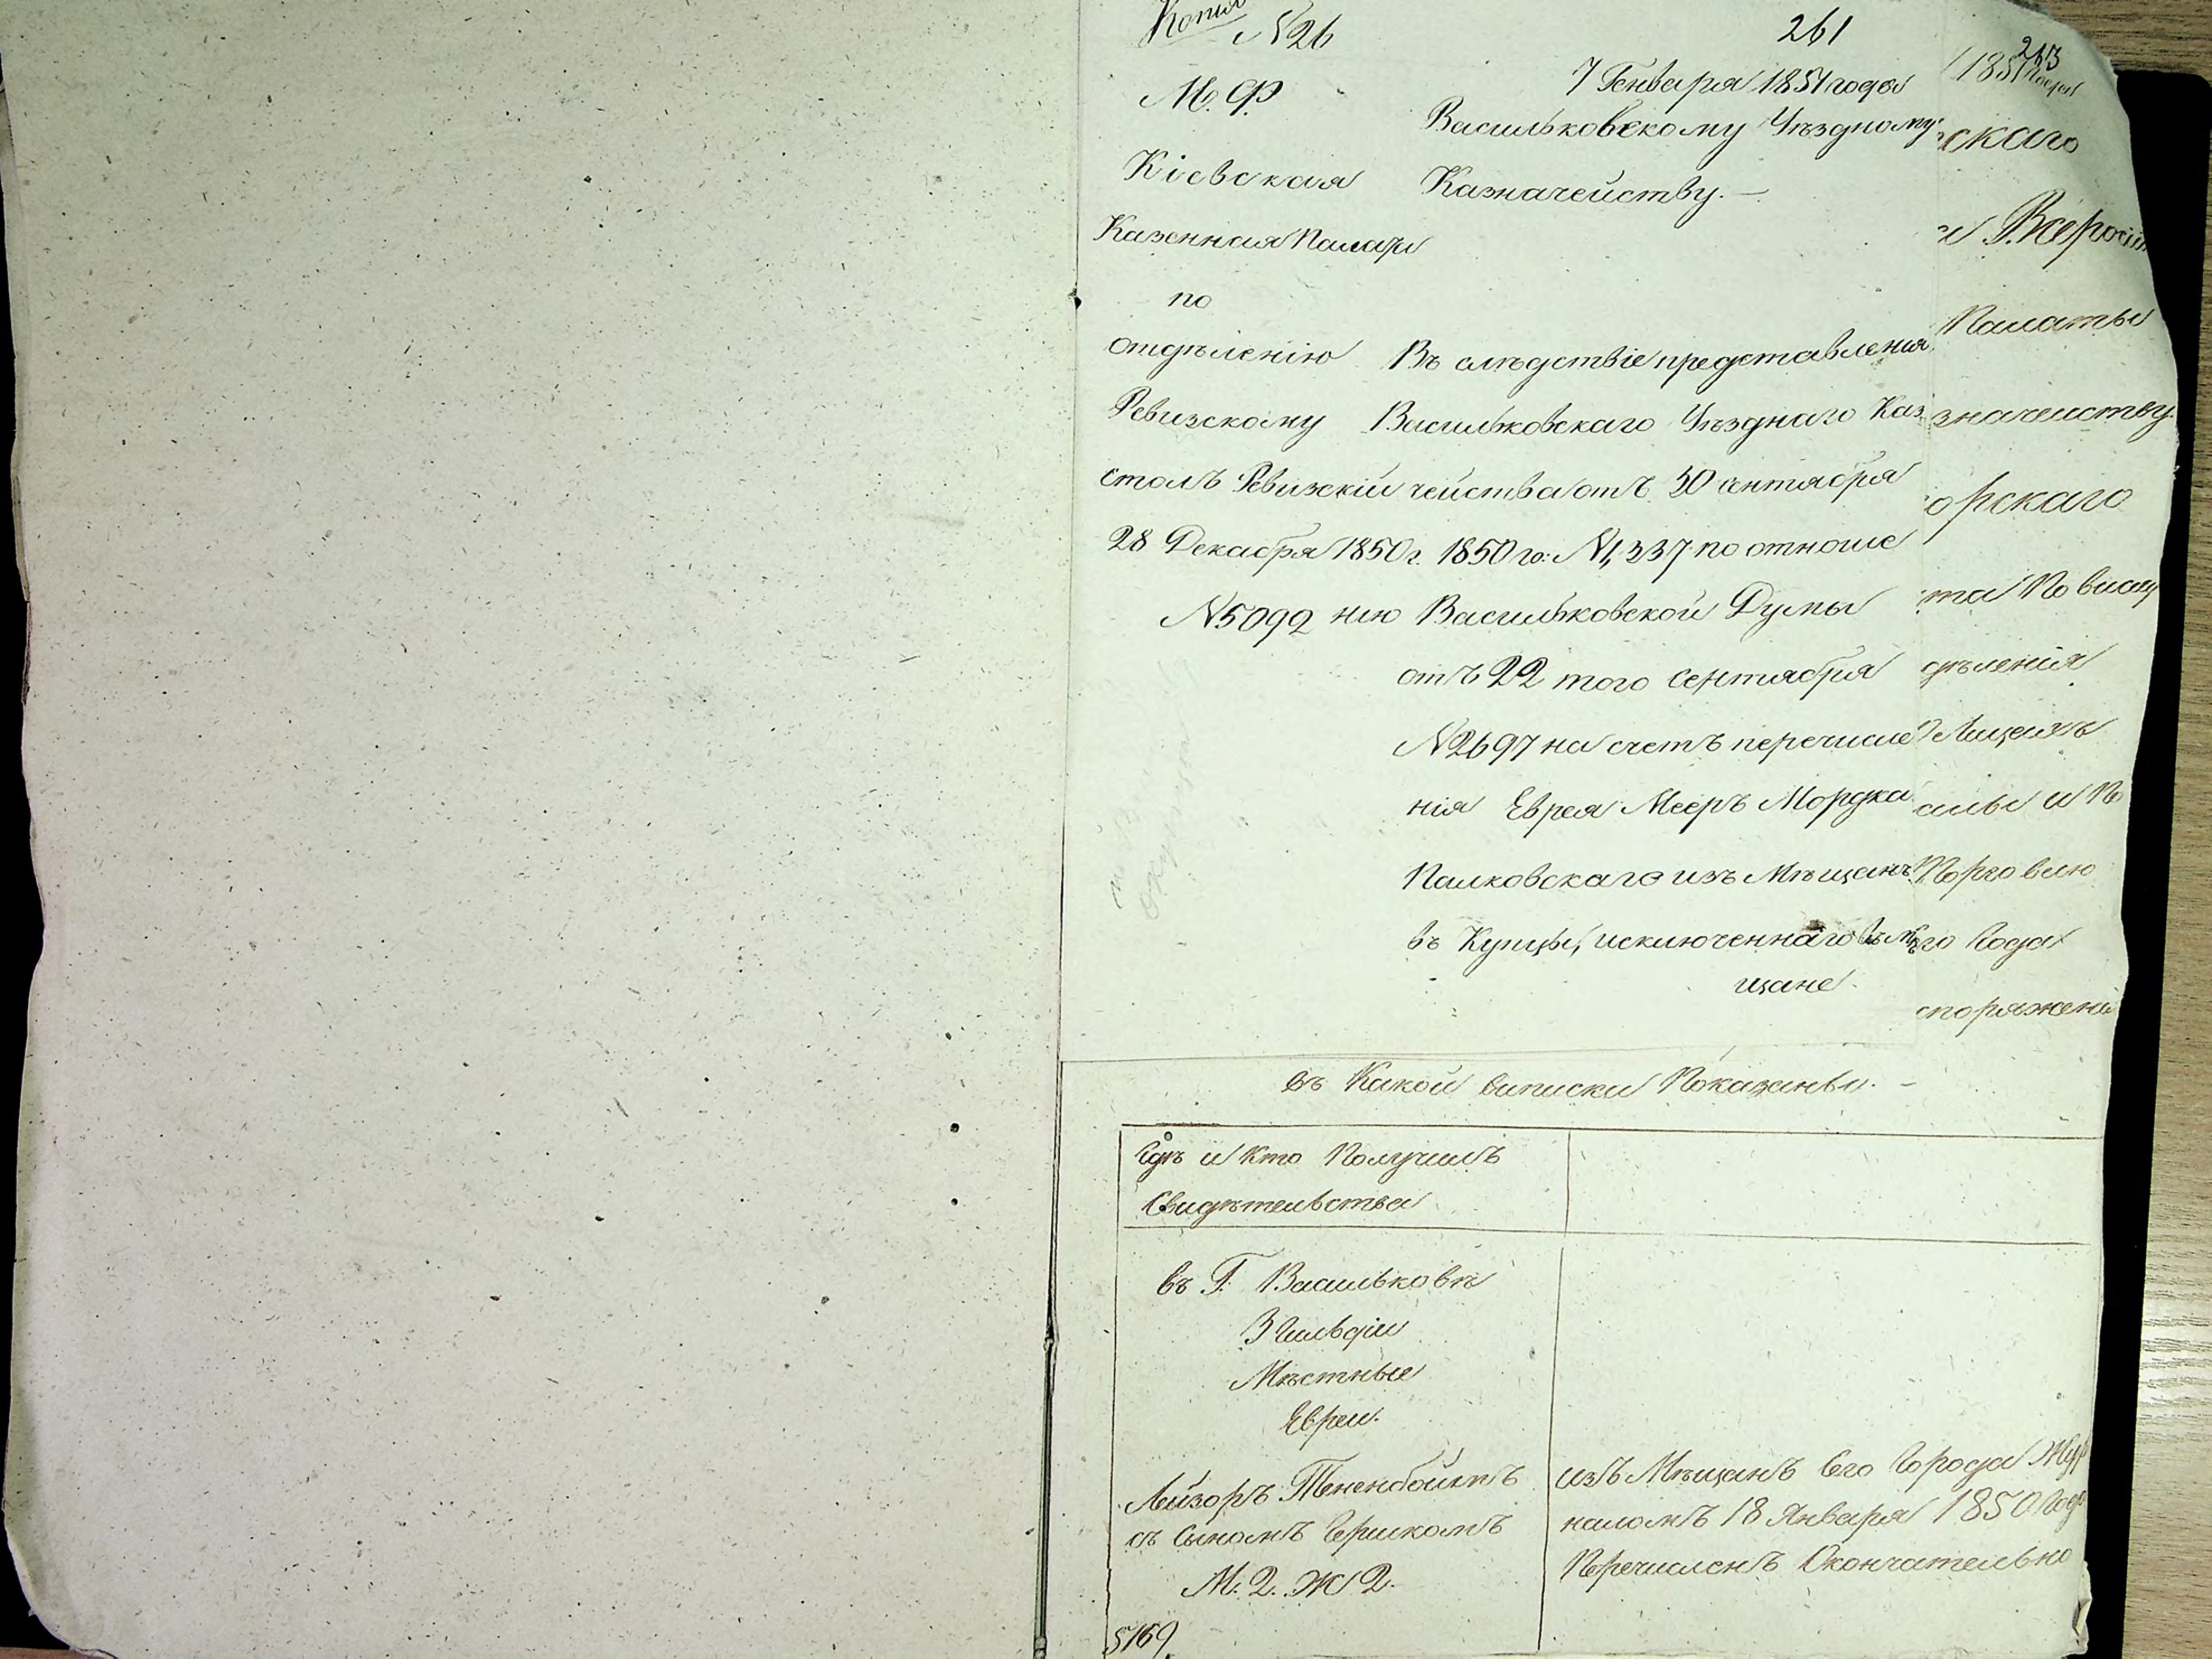 Копия
№26
261
М. Ф.
7 Генваря 1851 года
Васильковскому Уѣздному
Казначейству. —
Кіевская
Казенная Палата
по
отдѣленію
Ревизскому
столъ Ревизскій
28 Декабря 1850 г.
№5092
Въ слѣдствіе представленія
Васильковскаго Уѣзднаго Каз
чейства отъ 30 сентября
1850 го: № 1,337 по отноше
нію Васильковской Думы
отъ 22 того сентября
№2697 на счетъ перечисле
нія Еврея Мееръ Мордка
Палковскаго изъ Мѣщанъ
въ Купцы, исключеннаго въ мѣ
щане.
263
1851 года
скаго
Палаты
значейству.
орскаго
дѣленія
Торговлю
го Года
споряжени
въ Какой выписки Показаны. —
Гдѣ и Кто Получилъ
Свидѣтельства
въ Г. Васильковѣ
3 Гильдіи
Мѣстные
Евреи.
Лейзоръ Тененбоймъ
съ Сыномъ Гершкомъ
М. 2. Ж 2.
изъ Мѣщанъ Сего Города Жур
наломъ 18 Января 1850 Года
Перечисленъ Окончательно
5169